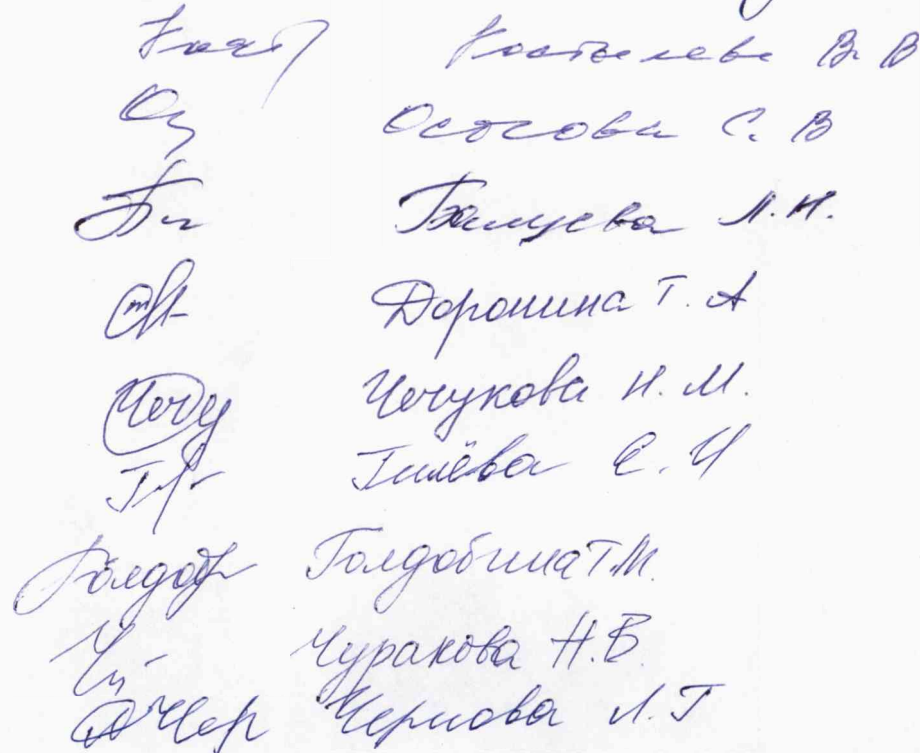 Костылева В. В
Осотова С. В
Балуева Л. Н.
Доронина Т. А
Чечукова Н. М.
Гилёва С. И
Голдоб Голдобина Т.М.
Чуракова Н.В.
Чер Чернова Л. Г